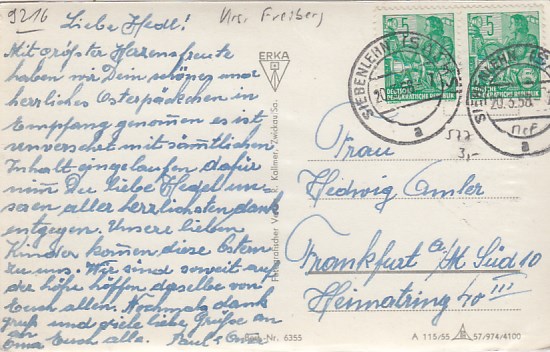 9216
Krs. Freiberg
Liebe Hedl!
Mit größter Herzensfreute
haben wir Dein schönes und
herrliches Osterpäckchen in
Empfang genomen es ist
unversehrt mit sämtlichen
Inhalt eingelaufen dafür
nimm Du liebe Hedel un-
seren aller herrlichsten dank
entgegen. Unsere lieben
Kinder komen diese Ostern
zu uns. Wir sind soweit auf
der höhe hoffen dasselbe von
Euch allen. Nochmals dank
gruß und viele liebe Grüße an
an Euch alle. Paul u. Oma
ERKA
Fotografischer Verlag R. Kallmer, Zwickau/Sa.
Best.-Nr. 6355
5
5
DEUTSCHE
DEMOKRATISCHE REPUBLIK
SIEBENLEHN (SACHS)
20.3.58
a
SIEBENLEHN
20.3.58
a
577
3,-
Frau
Hedwig Amler
Frankfurt a/M Süd 10
Heimatring 40 III
A 115/55
57/974/4100